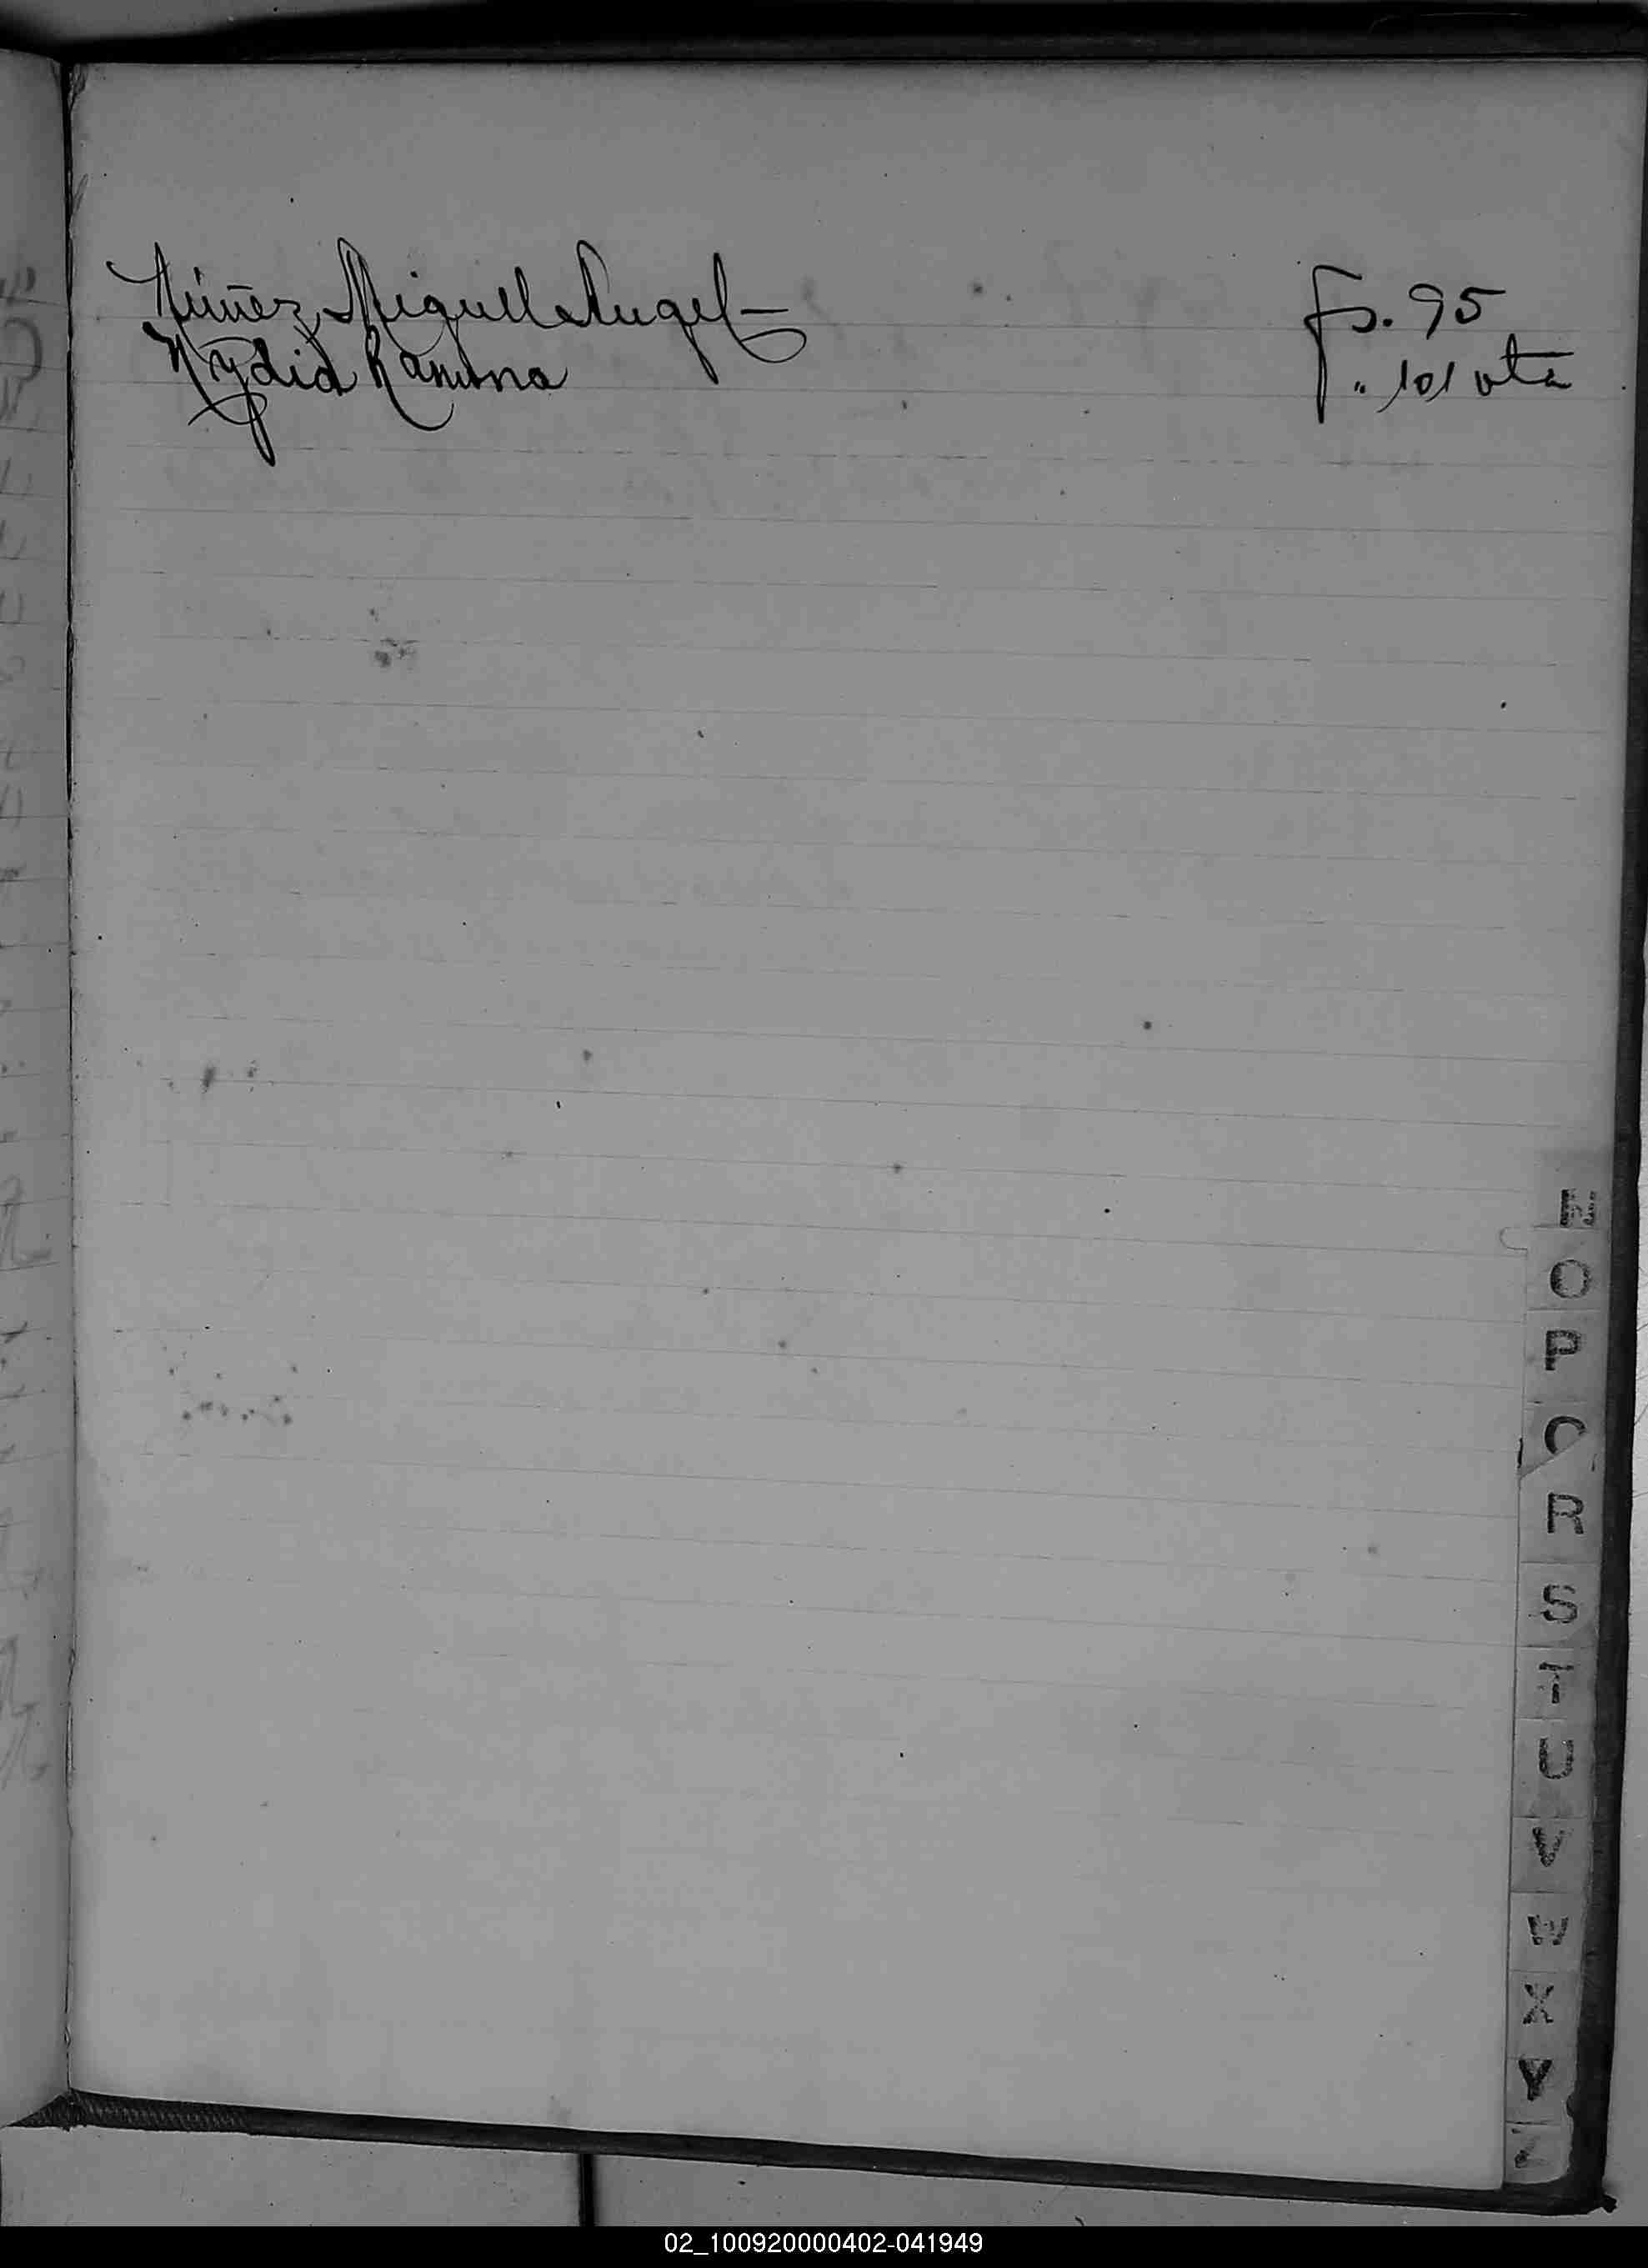 Núñez, Miguel Angel — fs. 95
Nydia Ramona " 101 vta
N
O
P
Q
R
S
T
U
V
W
X
Y
02_100920000402-041949